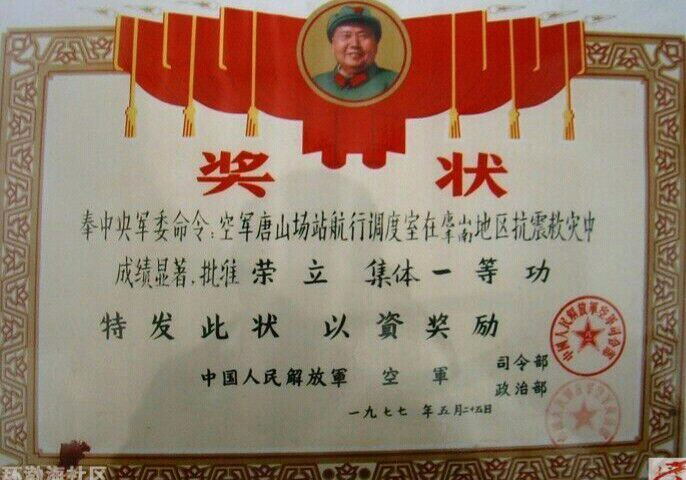 奖状
奉中央军委命令：空军唐山场站航行调度室在唐山丰南地区抗震救灾中
成绩显著，批准荣立 集体一等功
特发此状 以資奖励
中国人民解放軍 空軍 司令部
政治部
一九七七年五月二十五日
中國人民解放軍空軍司令部
环渤海社区